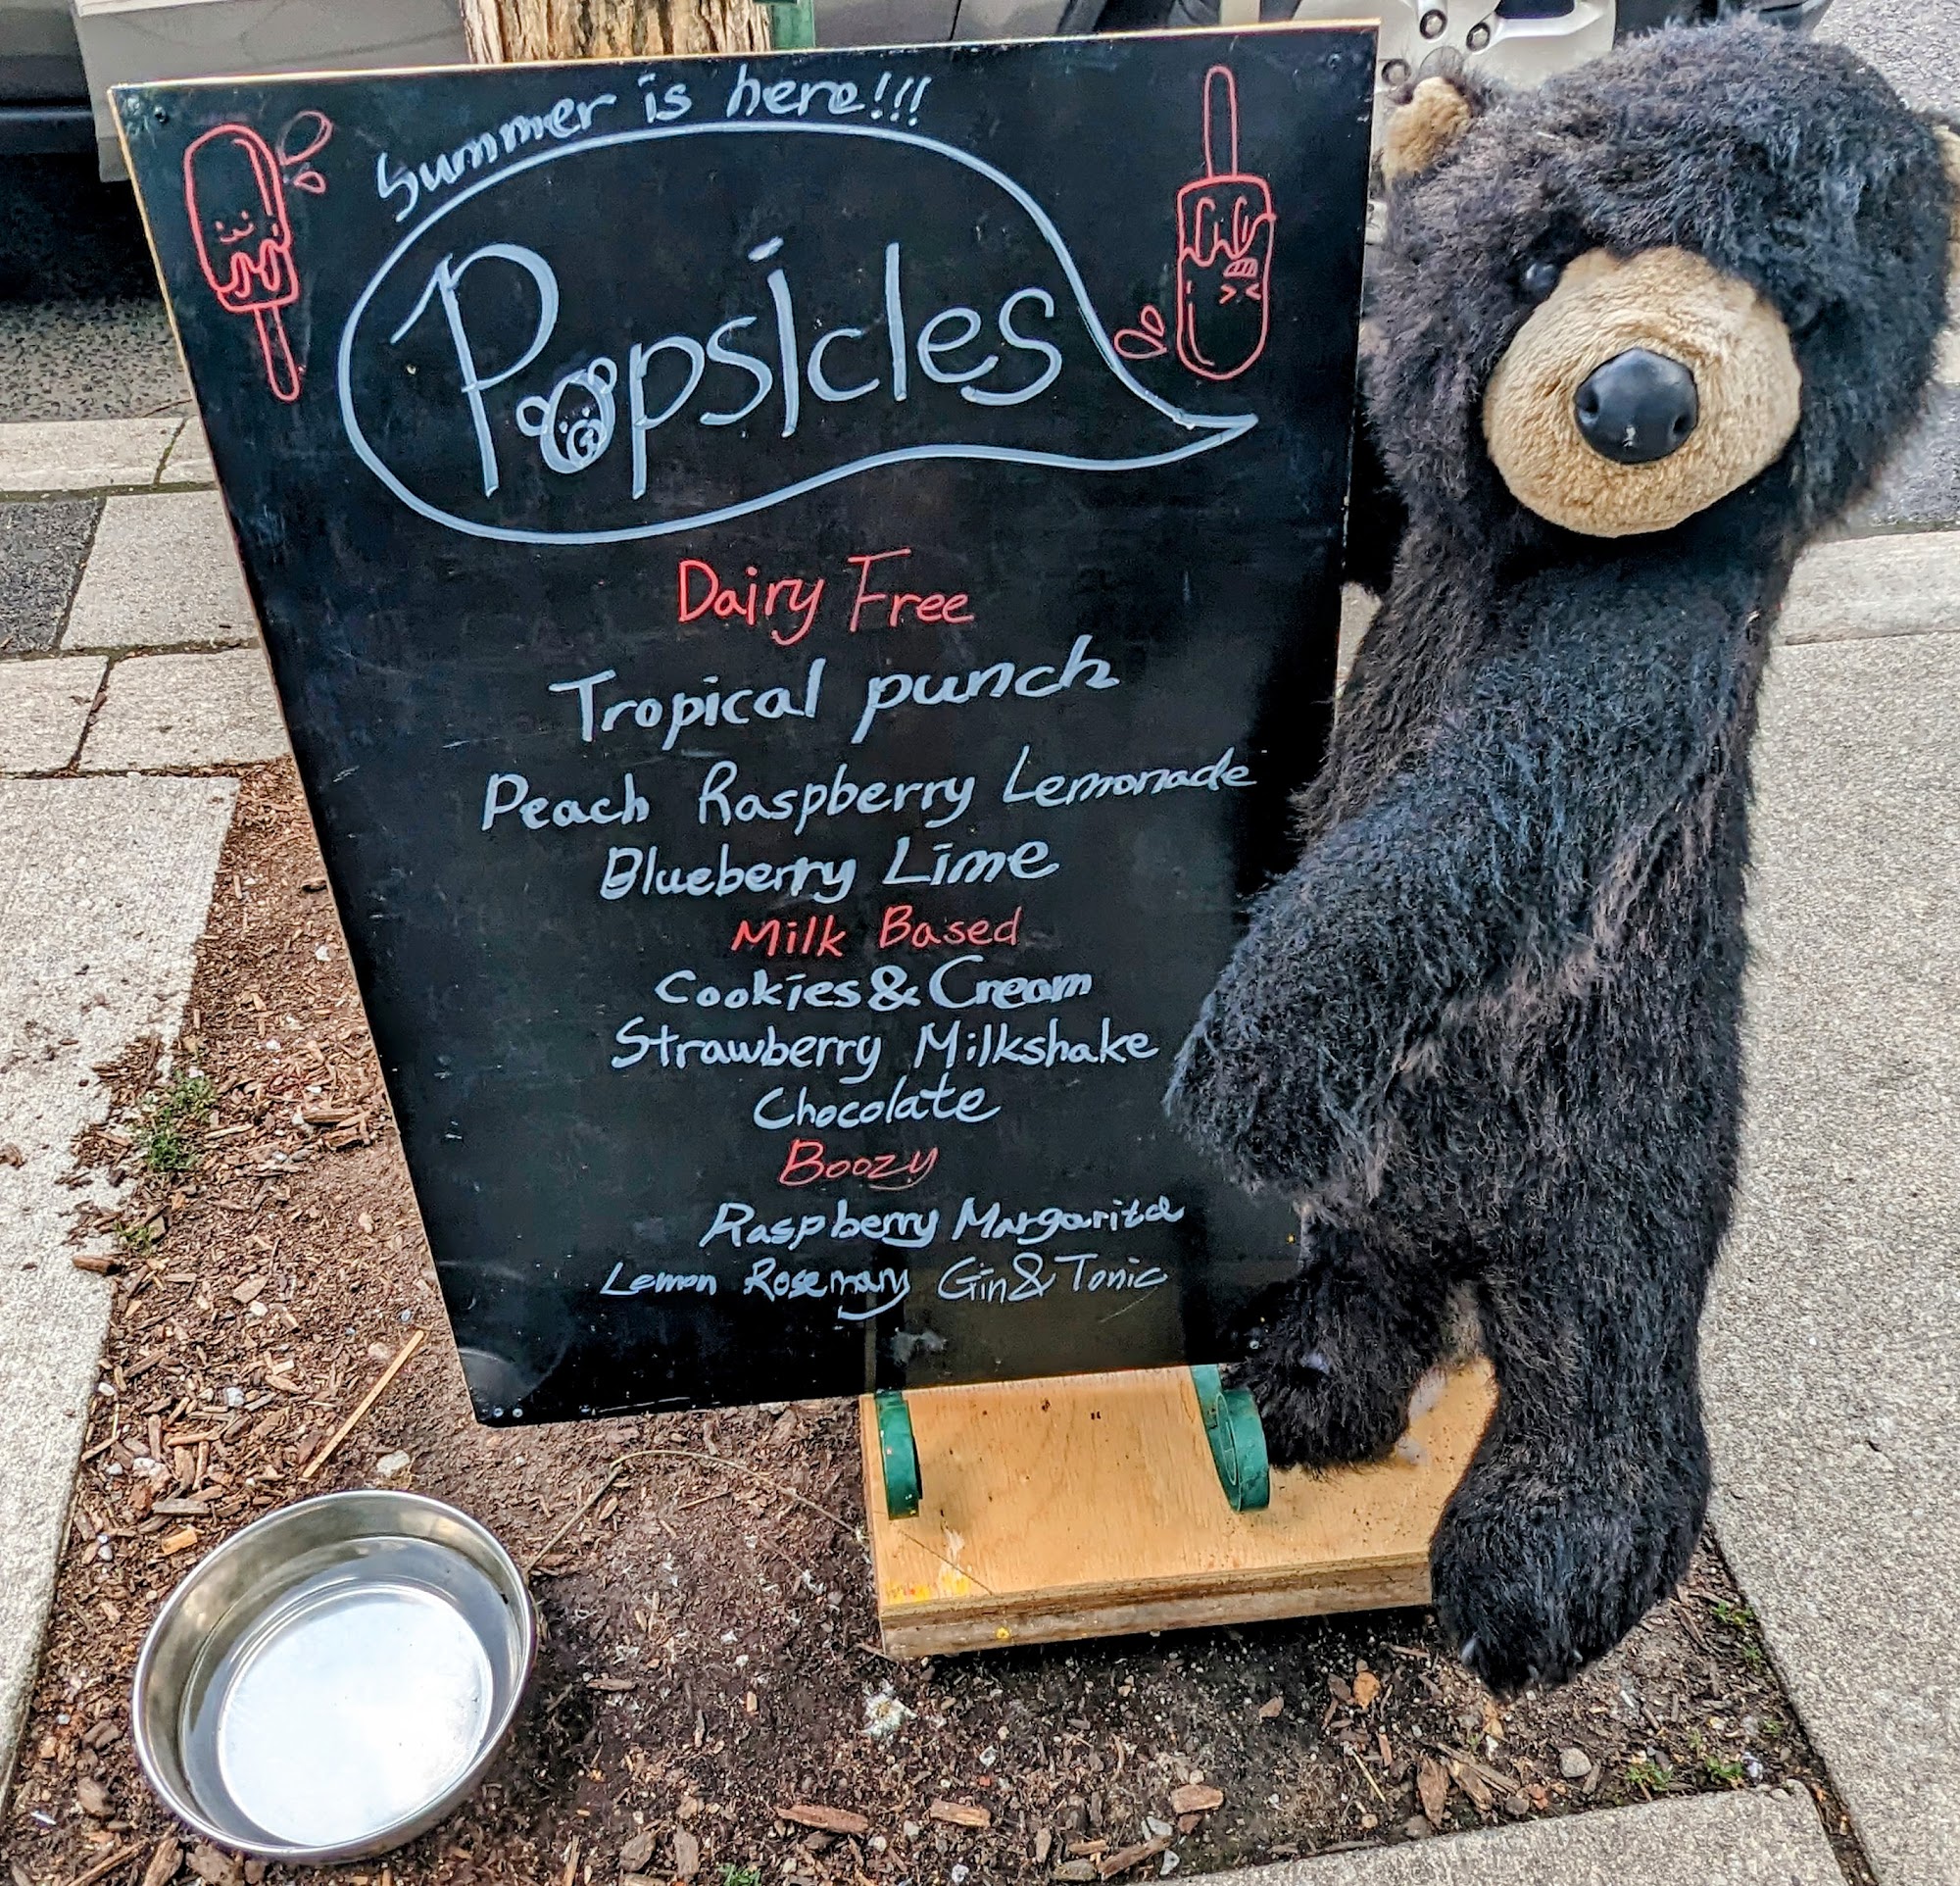 Summer is here!!!
Popsicles
Dairy Free
Tropical punch
Peach Raspberry Lemonade
Blueberry Lime
Milk Based
Cookies & Cream
Strawberry Milkshake
Chocolate
Boozy
Raspberry Margarita
Lemon Rosemary Gin & Tonic